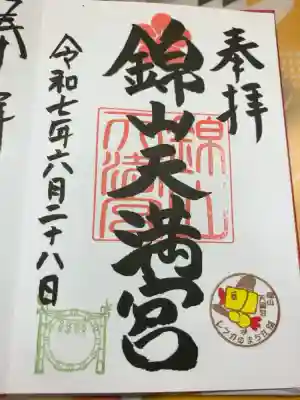 奉拝
錦山天満宮
錦山
天満宮
令和七年六月二十八日